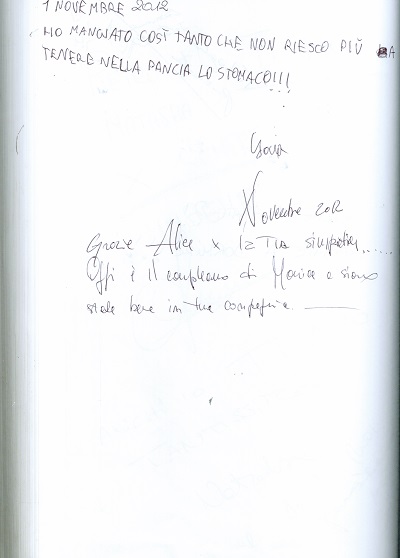 1 NOVEMBRE 2012
HO MANGIATO COSÌ TANTO CHE NON RIESCO PIÙ A
TENERE NELLA PANCIA LO STOMACO!!!
Novembre 2012
Grazie Alice x la Tua simpatia.....
Oggi è il compleanno di Monica e siamo
state bene in tua compagnia